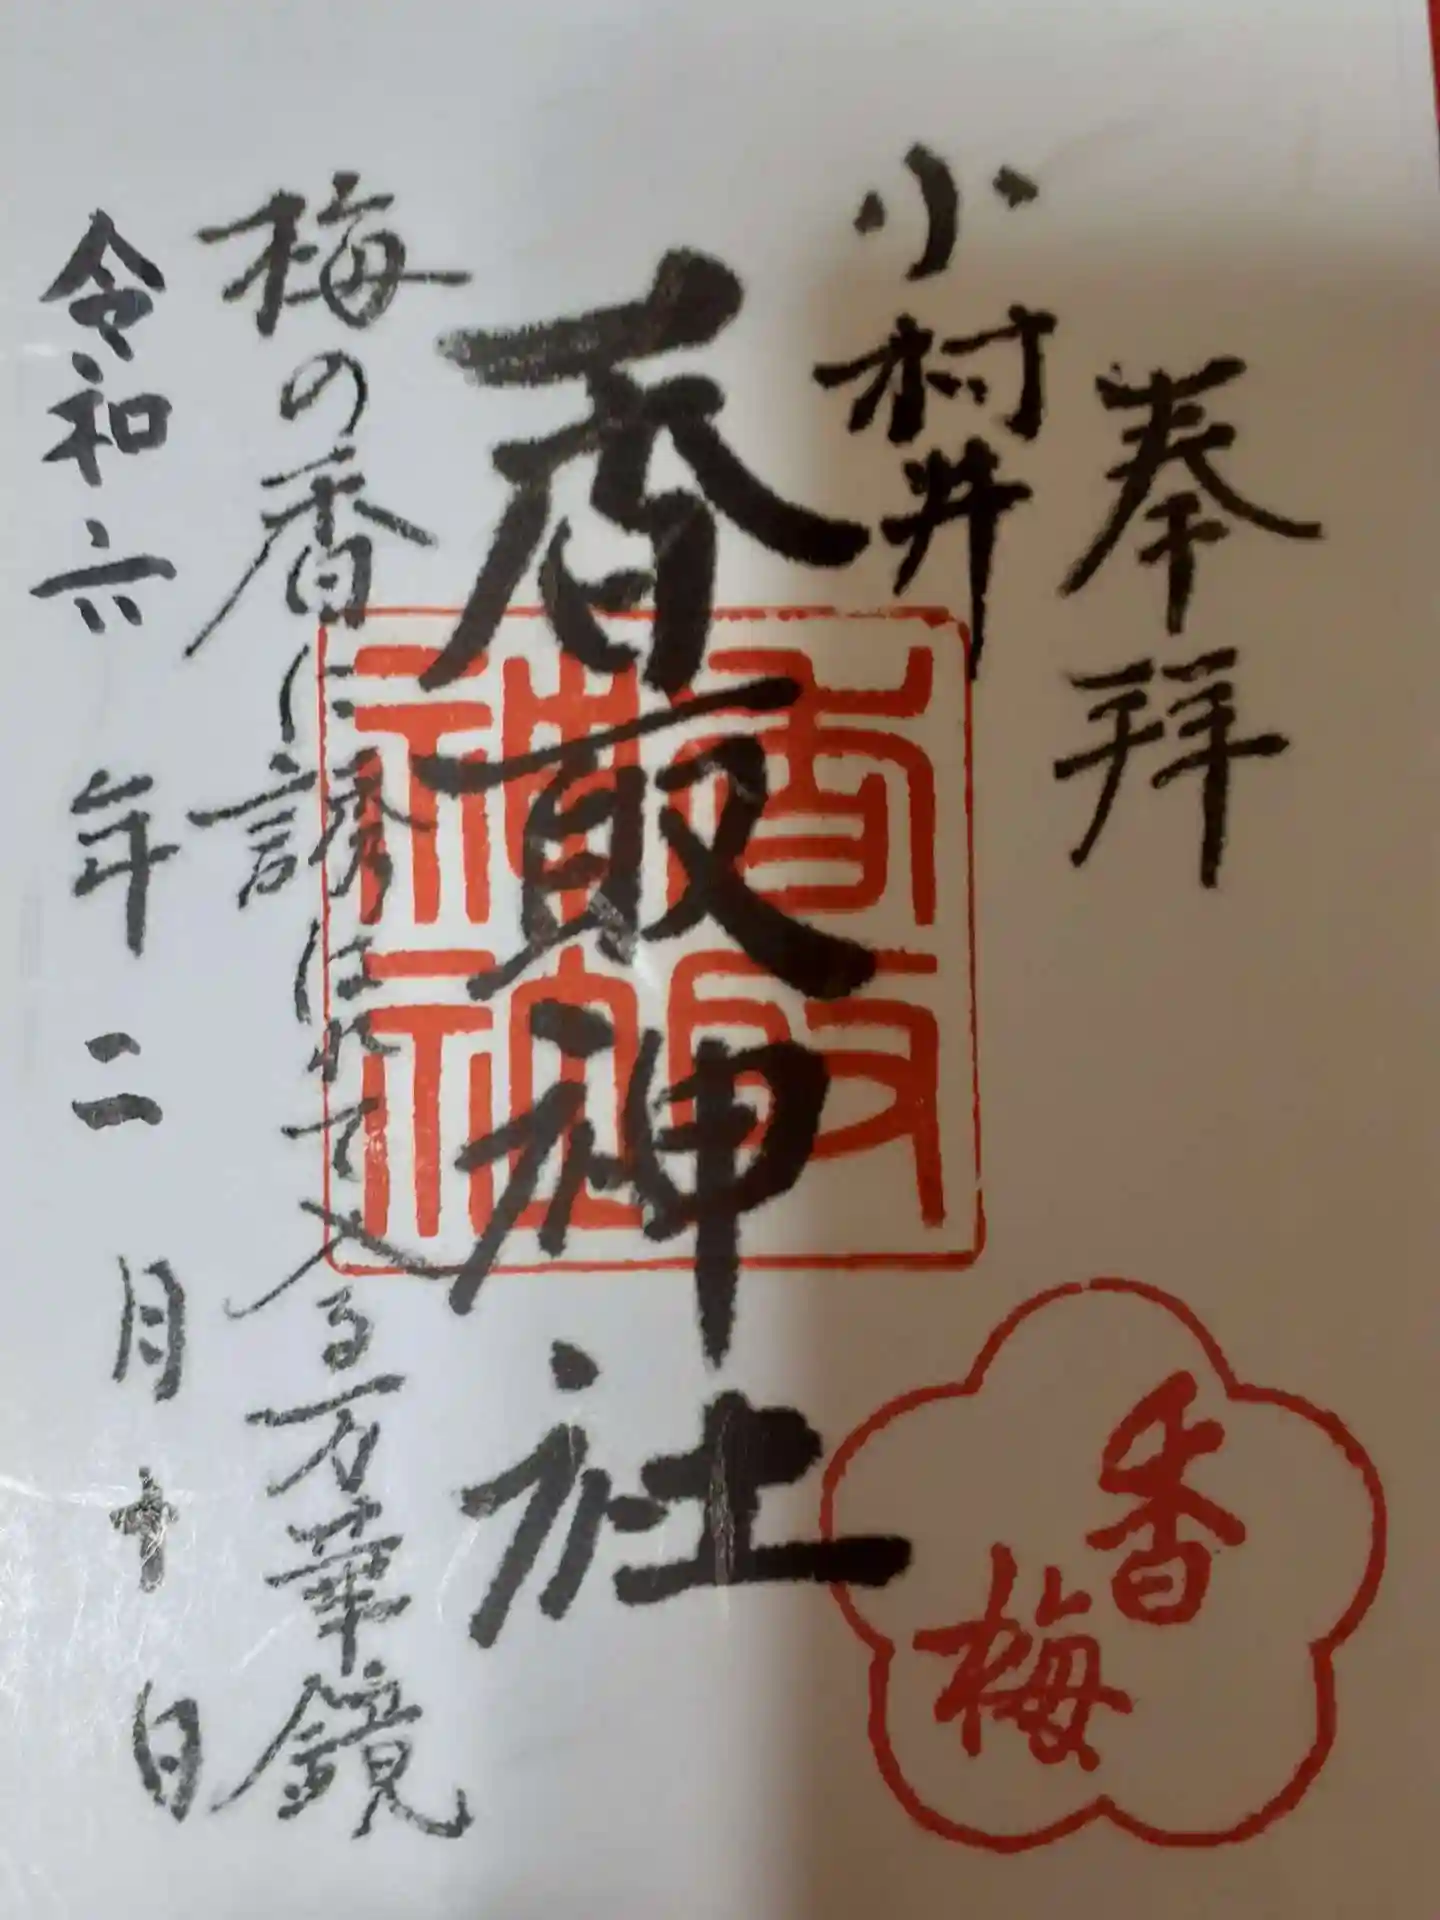 奉拝
小村井
香取神社
梅の香に誘はれて入る万華鏡
令和六年二月十日
香取
神社
香
梅